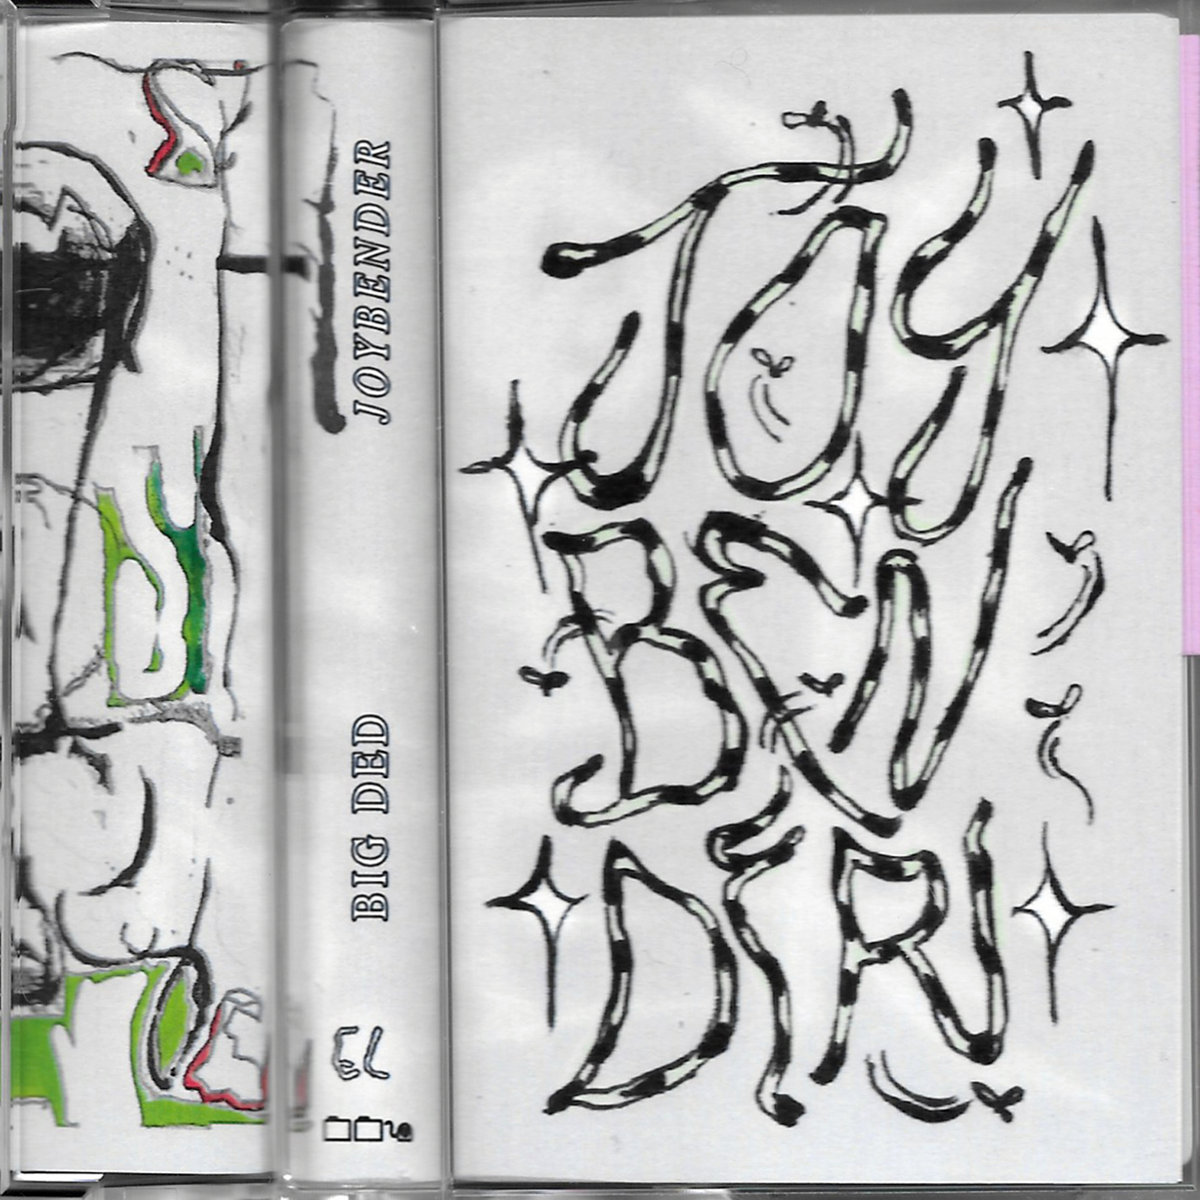 JOYBENDER
BIG DED
EL
JOY
BEN
DER